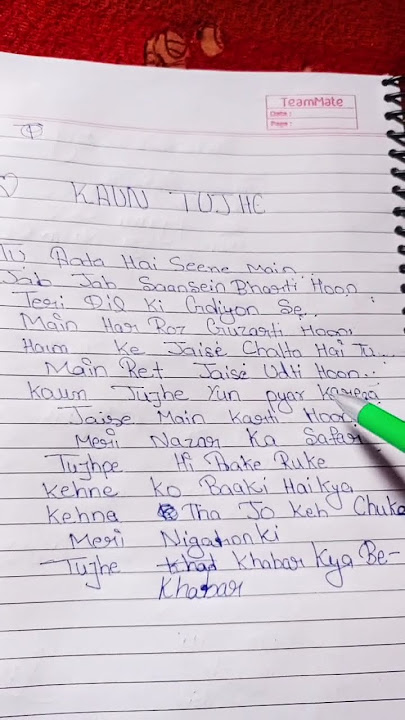 TeamMate
Date :
Page :
KAUN TUJHE
Tu Aata Hai Seene Main
Jab Jab Saansein Bharti Hoon
Teri Dil Ki Gdiyon Se..
Main Har Roz Guzarti Hoon
Haum Ke Jaise Chalta Hai Tu...
Main Ret Jaise Udti Hoon..
Kaun Tujhe Yun pyar Karega
Jaise Main Karti Hoon
Meri Nazar Ka Safar
Tujhpe Hi Aake Ruke
Kehne Ko Baaki Hai Kya
Kehna Tha Jo Keh Chuka
Meri Nigahon ki
Tujhe Khabar Kya Be-
Khabar